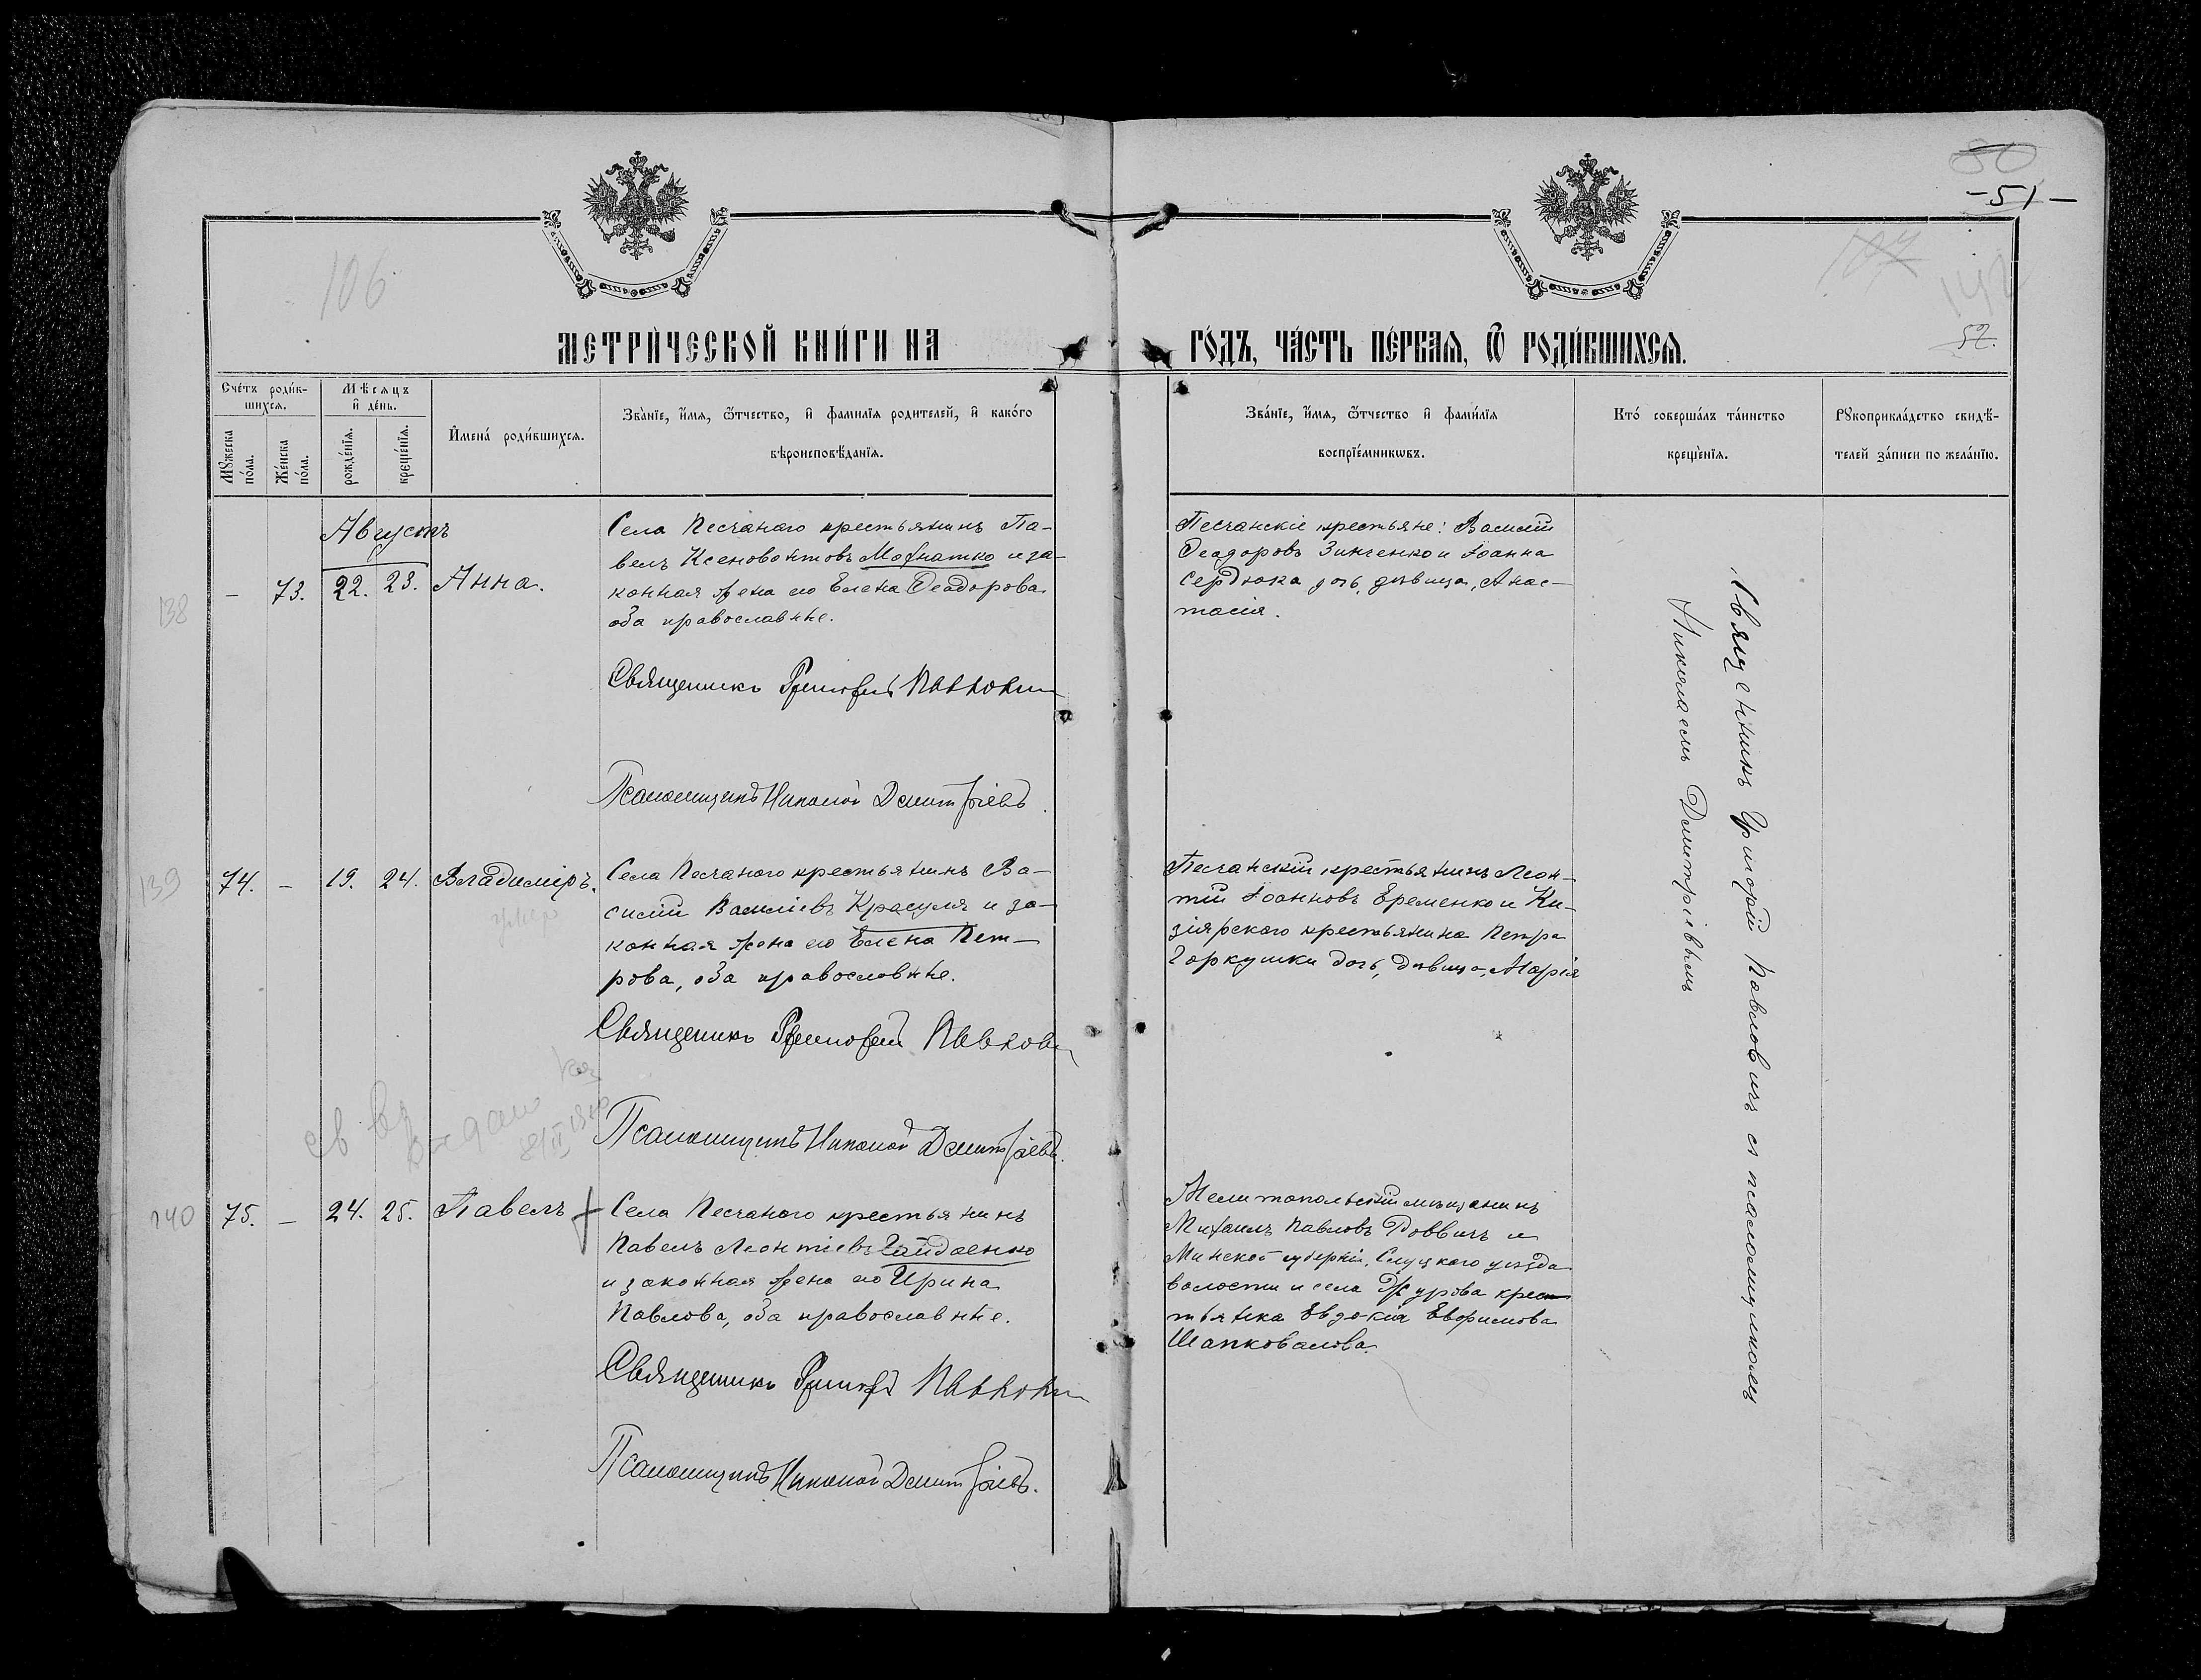 80
-51-
106
107
142
52.
МЕТРИ́ЧЕСКОЙ КНИ́ГИ НА
ГО́ДЪ, ЧА́СТЬ ПЕ́РВАЯ, Ѿ РОДИ́ВШИХСЯ.
Сче́тъ роди́в-
шихся.
Мѣсяцъ
и҆ де́нь.
Мꙋжеска
по́ла.
Же́нска
по́ла.
рожде́нїя.
креще́нїя.
И҆мена́ роди́вшихся.
Зва́нїе, и҆́мя, ѻ҆́тчество, и҆ фами́лїя родителей, и҆ како́го
вѣроисповѣ́данїя.
Зва́нїе, и҆́мя, ѻ҆́тчество и҆ фами́лїя
воспрїе́мникѡвъ.
Кто́ соверша́лъ та́инство
креще́нїя.
Рꙋкоприкла́дство свидѣ́-
телей за́писи по жела́нїю.
Августъ
138
–
73.
22.
23.
Анна.
Села Песчаного крестьянинъ Па-
велъ Ксенофонтовъ Мохнатко и за-
конная жена его Елена Ѳеодорова
оба православные.
Священникъ Григорій Павлович
Псаломщикъ Николай Димитріевъ.
Песчанскіе крестьяне: Василій
Ѳеодоровъ Зинченко и Іоанна
Сердюка дочь, дѣвица, Анас-
тасія.
139
74.
–
19.
24.
Владиміръ.
умер
Села Песчаного крестьянинъ Ва-
силій Василіевъ Красуля и за-
конная жена его Елена Пет-
рова, оба православные.
Священникъ Григорій Павлович
Псаломщикъ Николай Димитріевъ.
Песчанскій крестьянинъ Леон-
тій Іоанновъ Еременко и Ки-
зіярского крестьянина Петра
Горкушки дочь, дѣвица, Марія
св
выдано
140
75.
–
24.
25.
Павелъ
Села Песчаного крестьянинъ
Павелъ Леонтіевъ Гайдаенко
и законная жена его Ирина
Павлова, оба православные.
Священникъ Григорій Павлович
Псаломщикъ Николай Димитріевъ.
Мелитопольскій мѣщанинъ
Михаилъ Павловъ Роввичъ и
Минской губерніи, Слуцкого уѣзда
волости и села Журова крес-
тьянка Евдокія Евфимова
Шапковалова.
Священникъ Григорій Павловичъ съ псаломщикомъ
Николаемъ Димитріевымъ